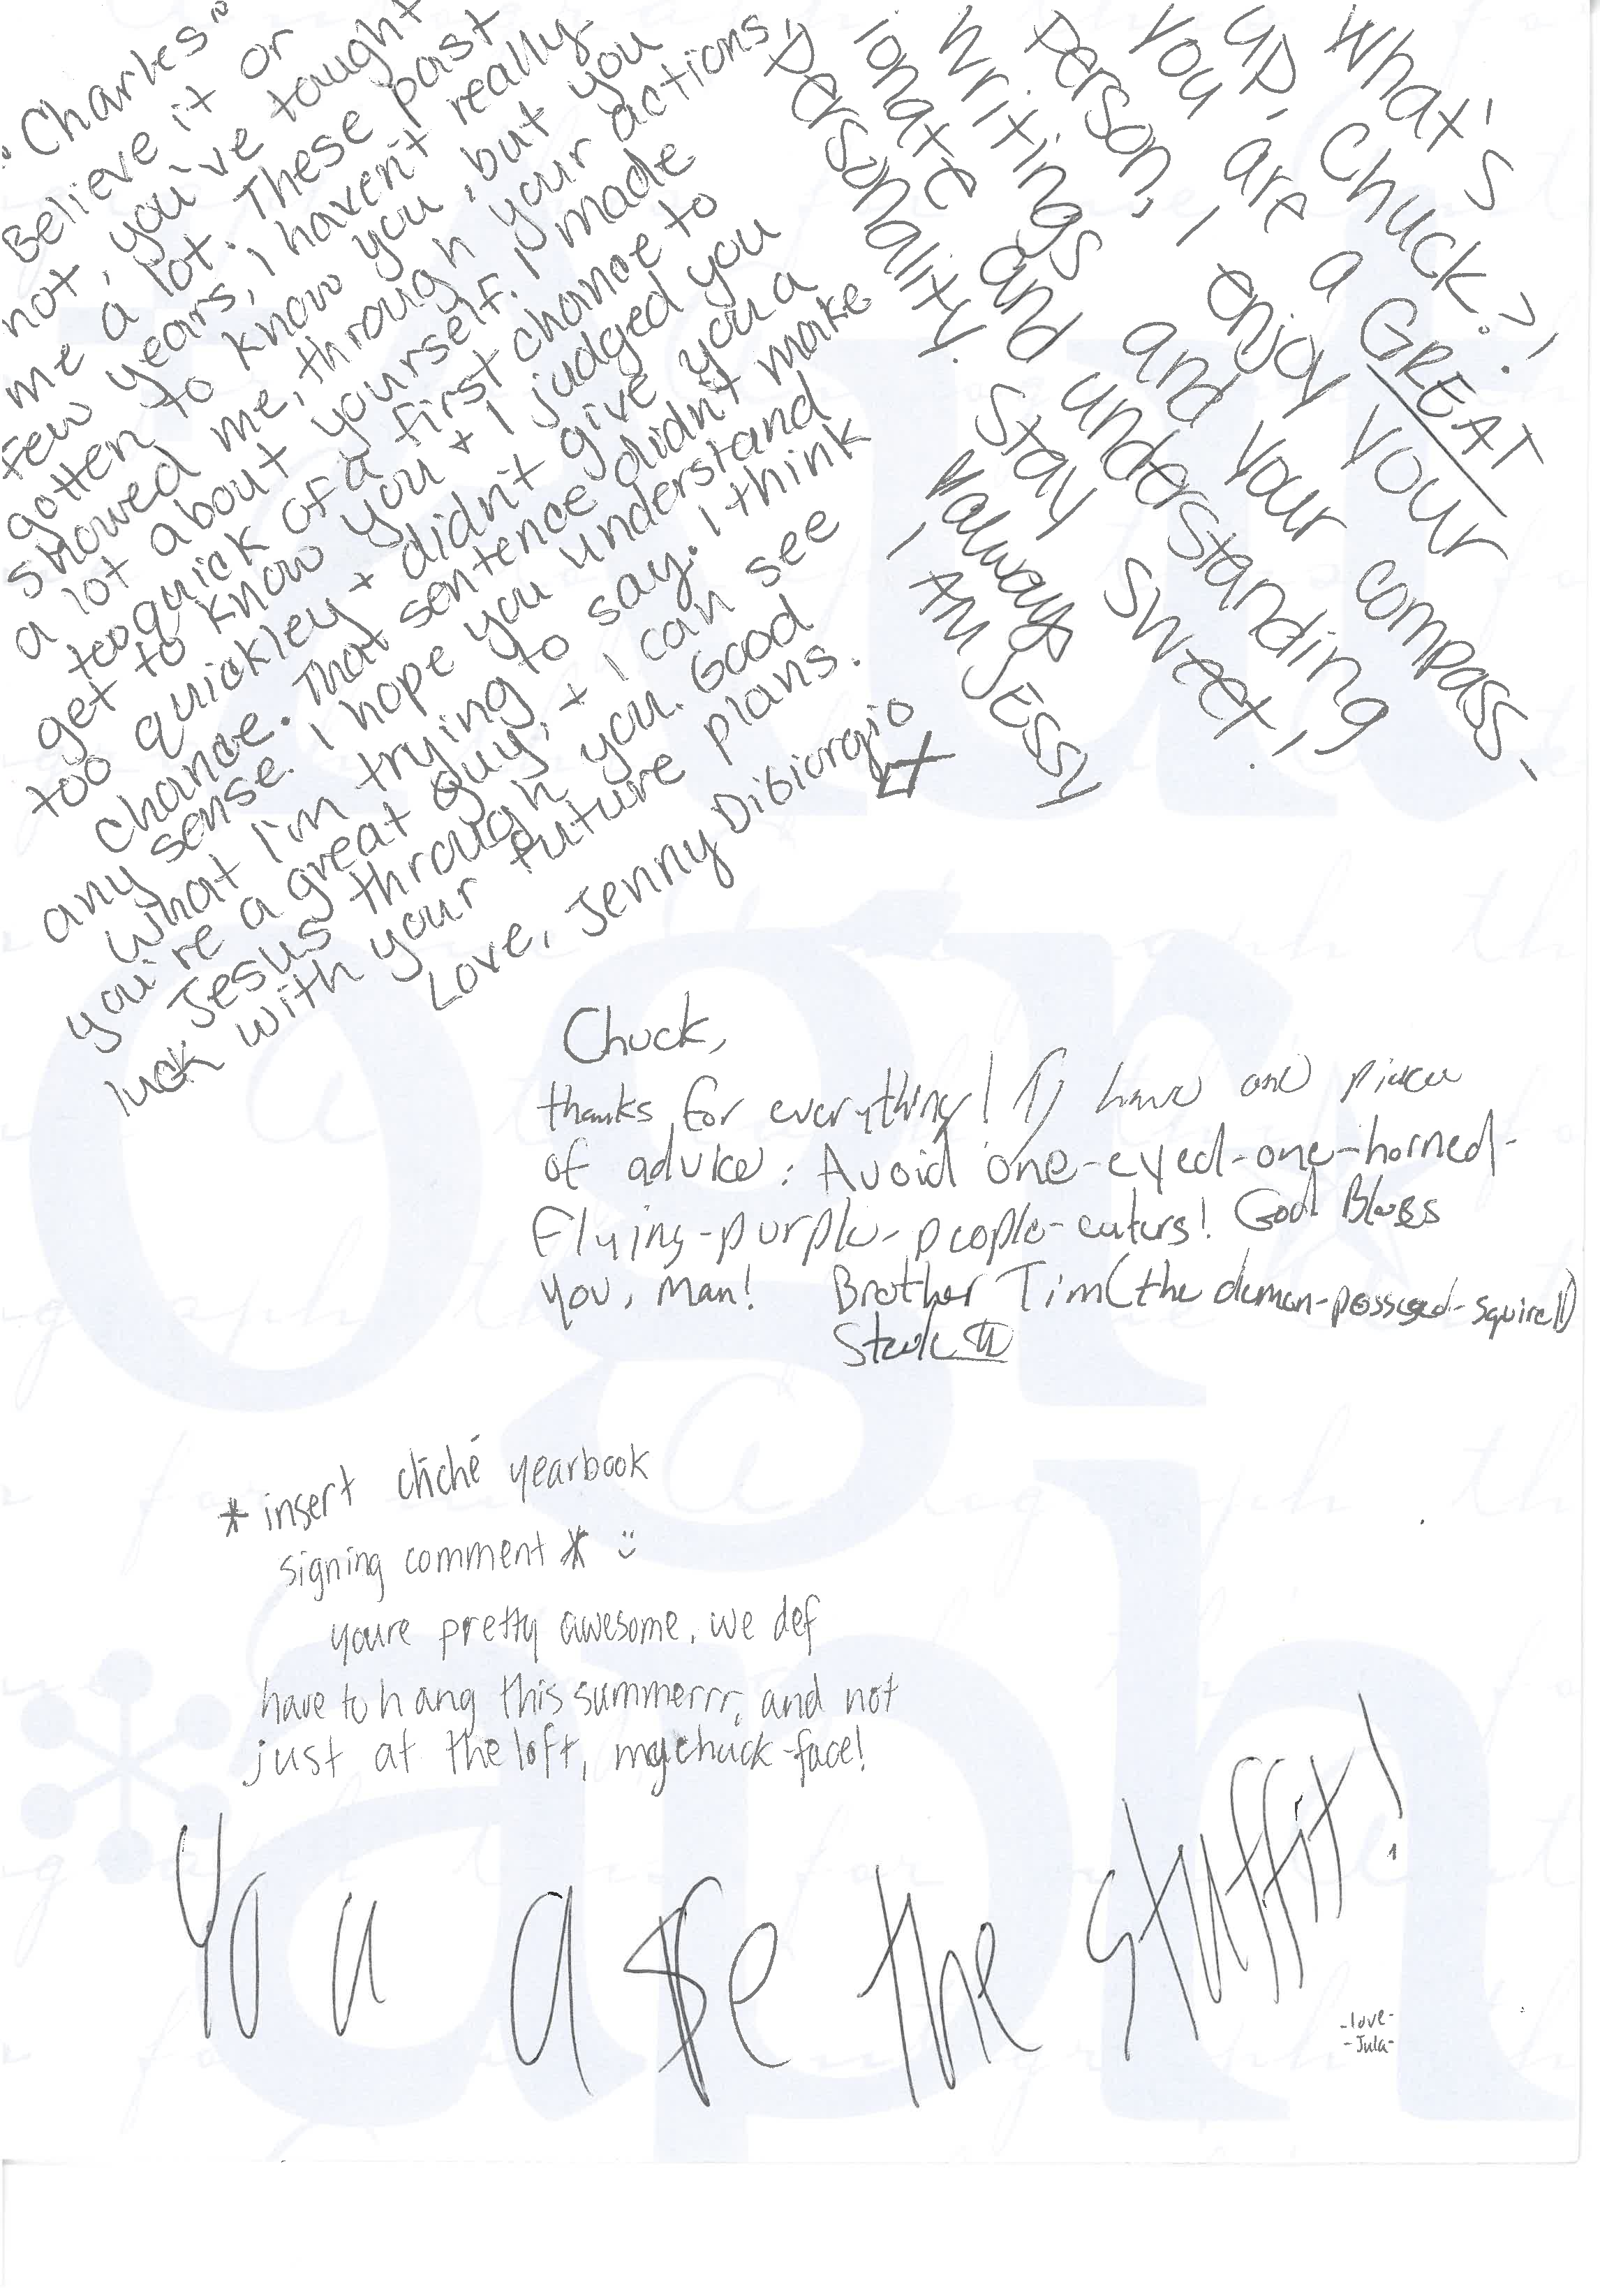 "Charles"
Believe it or
not, you've taught
me a lot. These past
few years, i haven't really
gotten to know you, but you
showed me, through your actions,
a lot about yourself. I made
too quick of a first chance to
get to know you + I judged you
too quickley + didn't give you a
chance. That sentence didn't make
any sense. I hope you understand
what I'm trying to say. I think
you're a great guy, + I can see
Jesus through you. Good
luck with your future plans.
Love, Jenny DiGiorgio
What's
up, Chuck?!
You are a GREAT
person, I enjoy your
writings and your compass-
ionate and understanding
personality. Stay sweet!
always
I AM JESSY
Chuck,
thanks for everything! I have one piece
of advice: Avoid one-eyed-one-horned-
flying-purple-people-eaters! God Bless
you, man! Brother Tim (the demon-possesed-squirell)
*insert cliché yearbook
signing comment* :)
youre pretty awesome. we def
have to hang this summerrr, and not
just at the loft, mychuck-face!
You are the stuffit!
-love-
-Jula-
au
ogr
aph